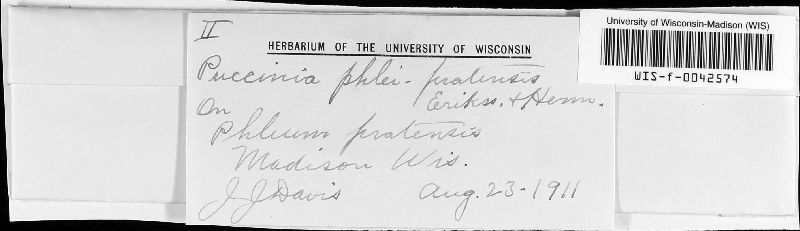 II
HERBARIUM OF THE UNIVERSITY OF WISCONSIN
Puccinia phlei-pratensis
Erikss. & Henn.
On
Phleum pratensis
Madison Wis.
J J Davis Aug. 23-1911
University of Wisconsin-Madison (WIS)
WIS-f-0042574